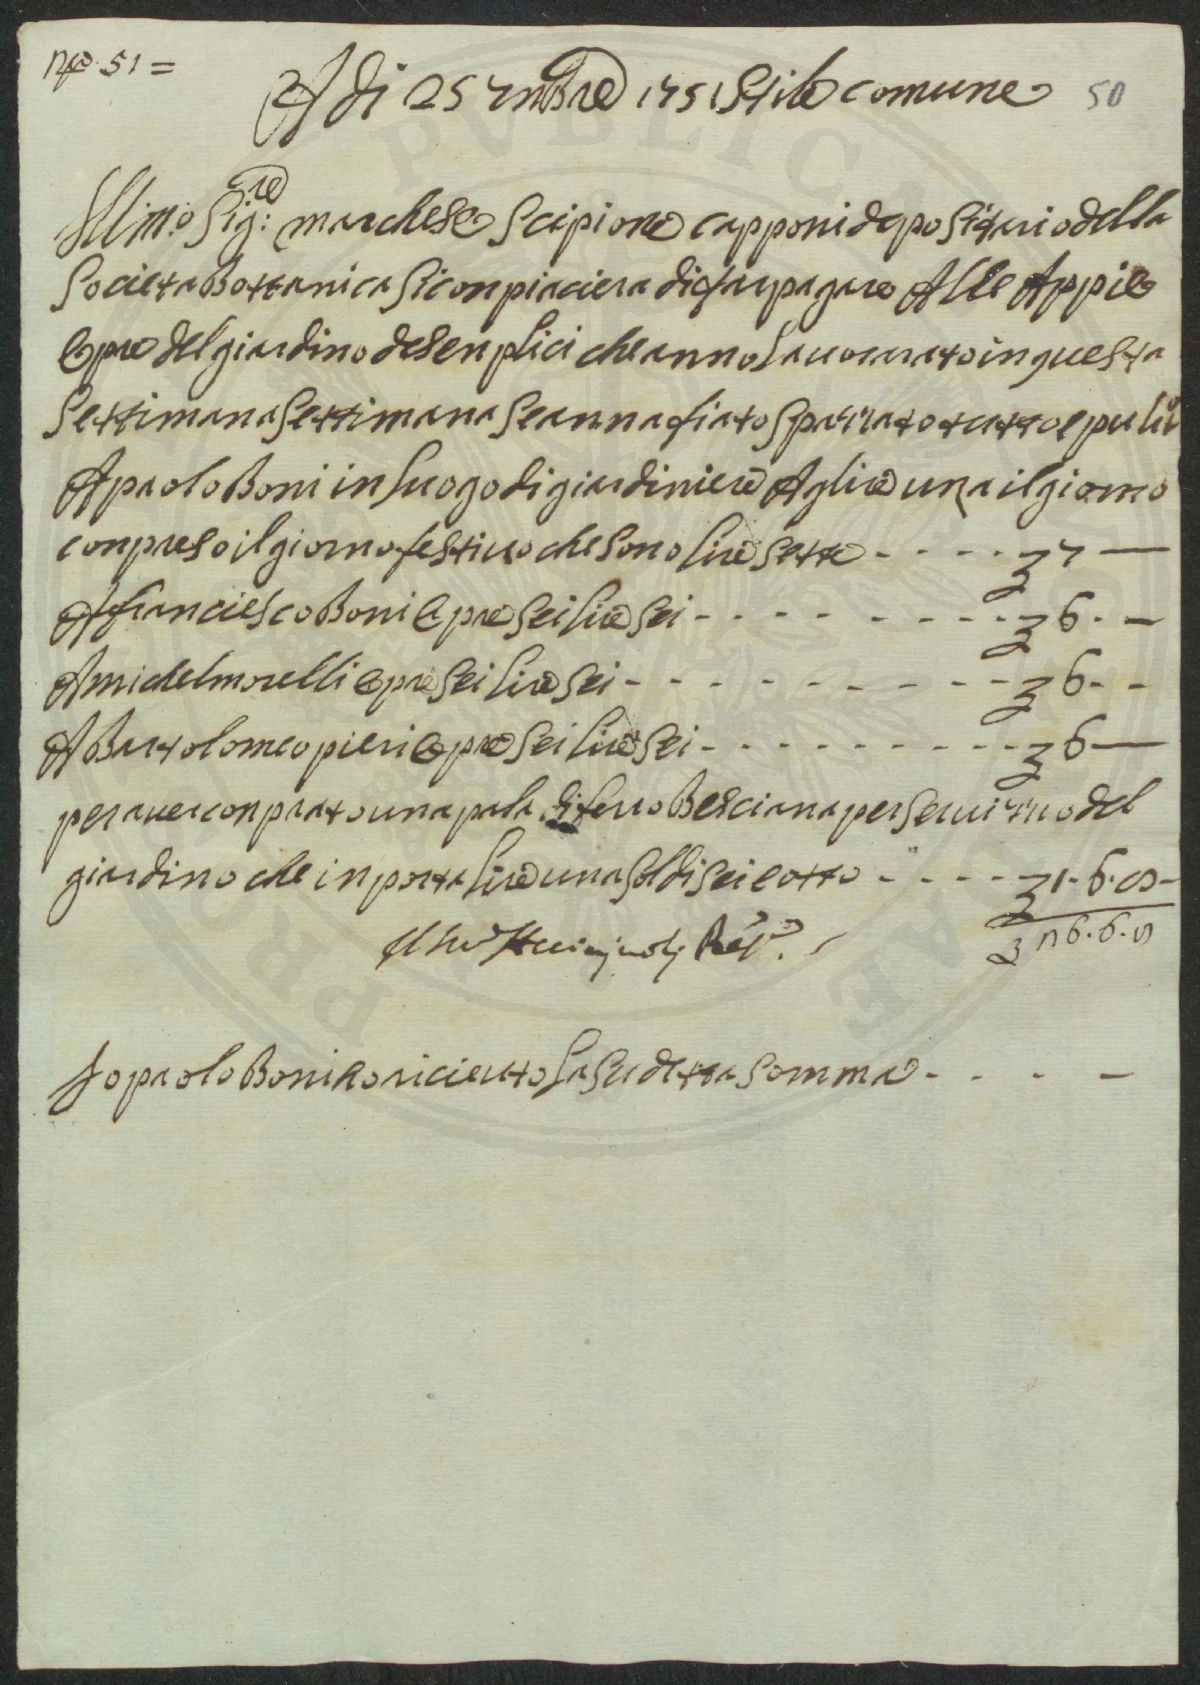 N° 51 =
A di 25 7mbre 1751 Stile comune 50
Illmo Sig:re marchese Scipione capponi depositario della
Societa Bottanica Si conpiaciera di far pagare Alle Appie
Opre del giardino de Senplici che anno Lauorato in questa
Settimana Settimana Se annafiato Spa tutto e puli
A paolo Boni in luogo di giardiniere A lire una il giorno
conpreso il giorno festiuo che sono lire sette - - - - 7 —
A franciesco Boni Opre Sei lire Sei - - - - - - - - 6 . —
A michel morelli Opre Sei lire Sei - - - - - - - - - 6 - -
A Bartolomeo pieri Opre Sei lire Sei - - - - - - - - - 6 —
per auer conprato una pala di ferro Besciana per Seruitio del
giardino che inporta lire una Soldi Sei e otto - - - - 1 . 6 . 8 -
26 . 6 . 8
Io paolo Boni ho riceuto La Sudetta Somma - - - -
PVBLIC